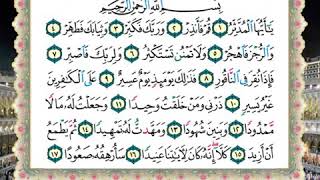 بِسْمِ اللَّهِ الرَّحْمَٰنِ الرَّحِيمِ
يَا أَيُّهَا الْمُدَّثِّرُ ١ قُمْ فَأَنذِرْ ٢ وَرَبَّكَ فَكَبِّرْ ٣ وَثِيَابَكَ فَطَهِّرْ ٤
وَالرُّجْزَ فَاهْجُرْ ٥ وَلَا تَمْنُن تَسْتَكْثِرُ ٦ وَلِرَبِّكَ فَاصْبِرْ ٧
فَإِذَا نُقِرَ فِي النَّاقُورِ ٨ فَذَٰلِكَ يَوْمَئِذٍ يَوْمٌ عَسِيرٌ ٩ عَلَى الْكَافِرِينَ
غَيْرُ يَسِيرٍ ١٠ ذَرْنِي وَمَنْ خَلَقْتُ وَحِيدًا ١١ وَجَعَلْتُ لَهُ مَالًا
مَّمْدُودًا ١٢ وَبَنِينَ شُهُودًا ١٣ وَمَهَّدتُّ لَهُ تَمْهِيدًا ١٤ ثُمَّ يَطْمَعُ
أَنْ أَزِيدَ ١٥ كَلَّا إِنَّهُ كَانَ لِآيَاتِنَا عَنِيدًا ١٦ سَأُرْهِقُهُ صَعُودًا ١٧